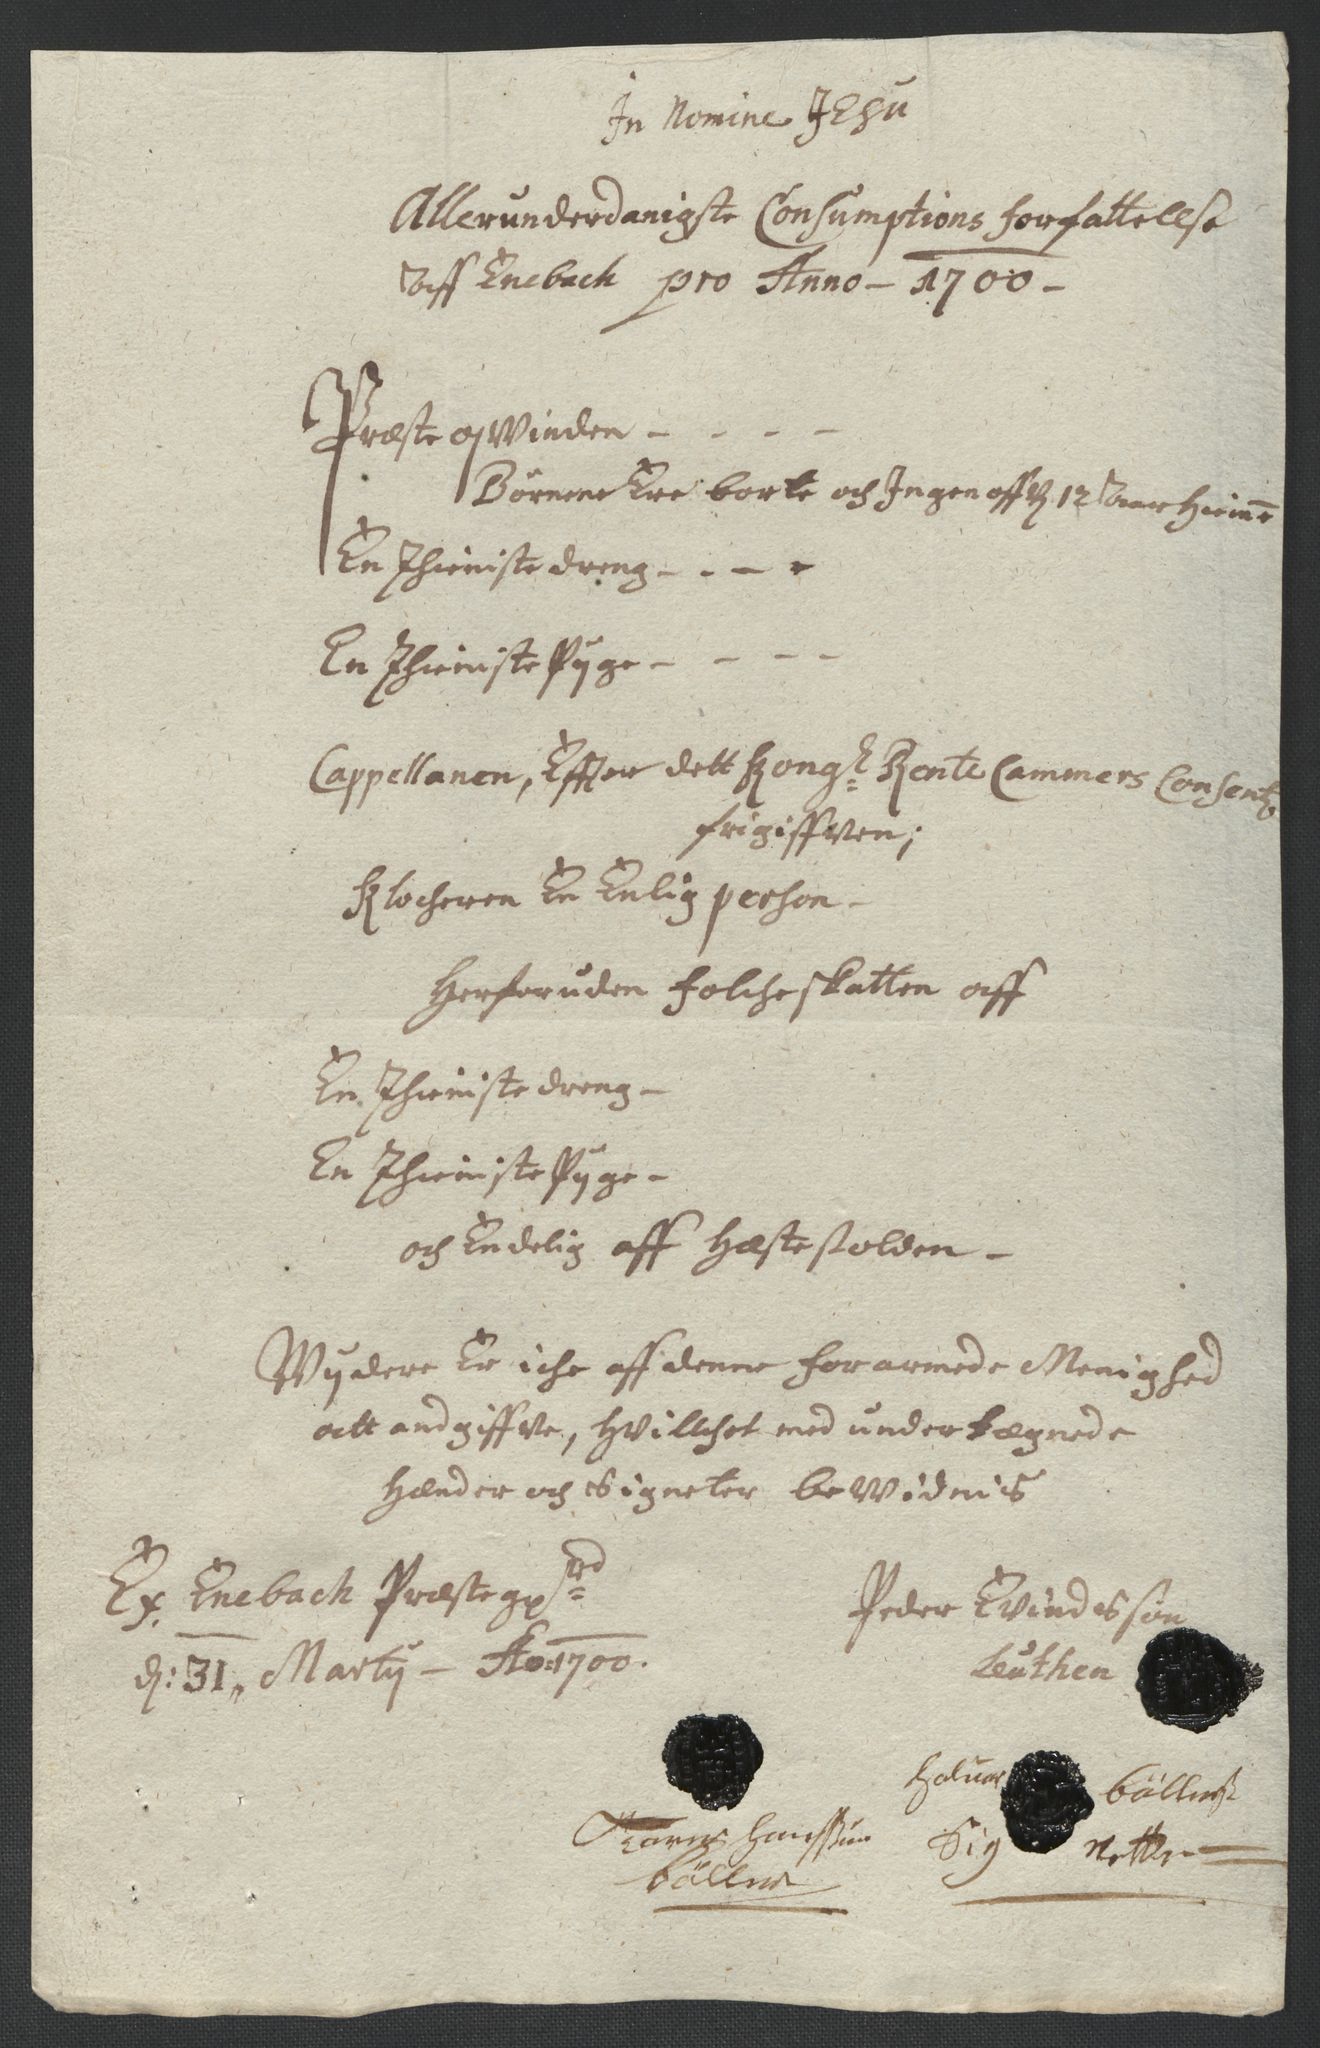 In Nomine JEsu
Allerunderdanigste Consumptions forfattellse
Aff Enebach pro Anno - 1700 -
Præste qvinden - - - -
Börnene Ere borte och Ingen offr 12 Aar hieime
En Thieniste dreng - - - -
En Thieniste Pyge - - - -
Cappellanen, Effter dett Kongl Rente Cammers Consentz
frigiffven;
Klocheren En Enlig person -
Herforuden folcheskatten aff
En Thieniste dreng -
En Thieniste Pyge -
och Endelig aff Hæstestolden -
Wydere Er iche aff denne forarmede Menighed
att andgiffve, hvillchet med undertægnede
Hænder och Signeter bewidnis
Ex Enebach Præstegrd
d: 31,, Martij - Ao 1700.
Peder Evindssön
Leuthen
Haluor böllers
Hanssøn Sig nette
böller